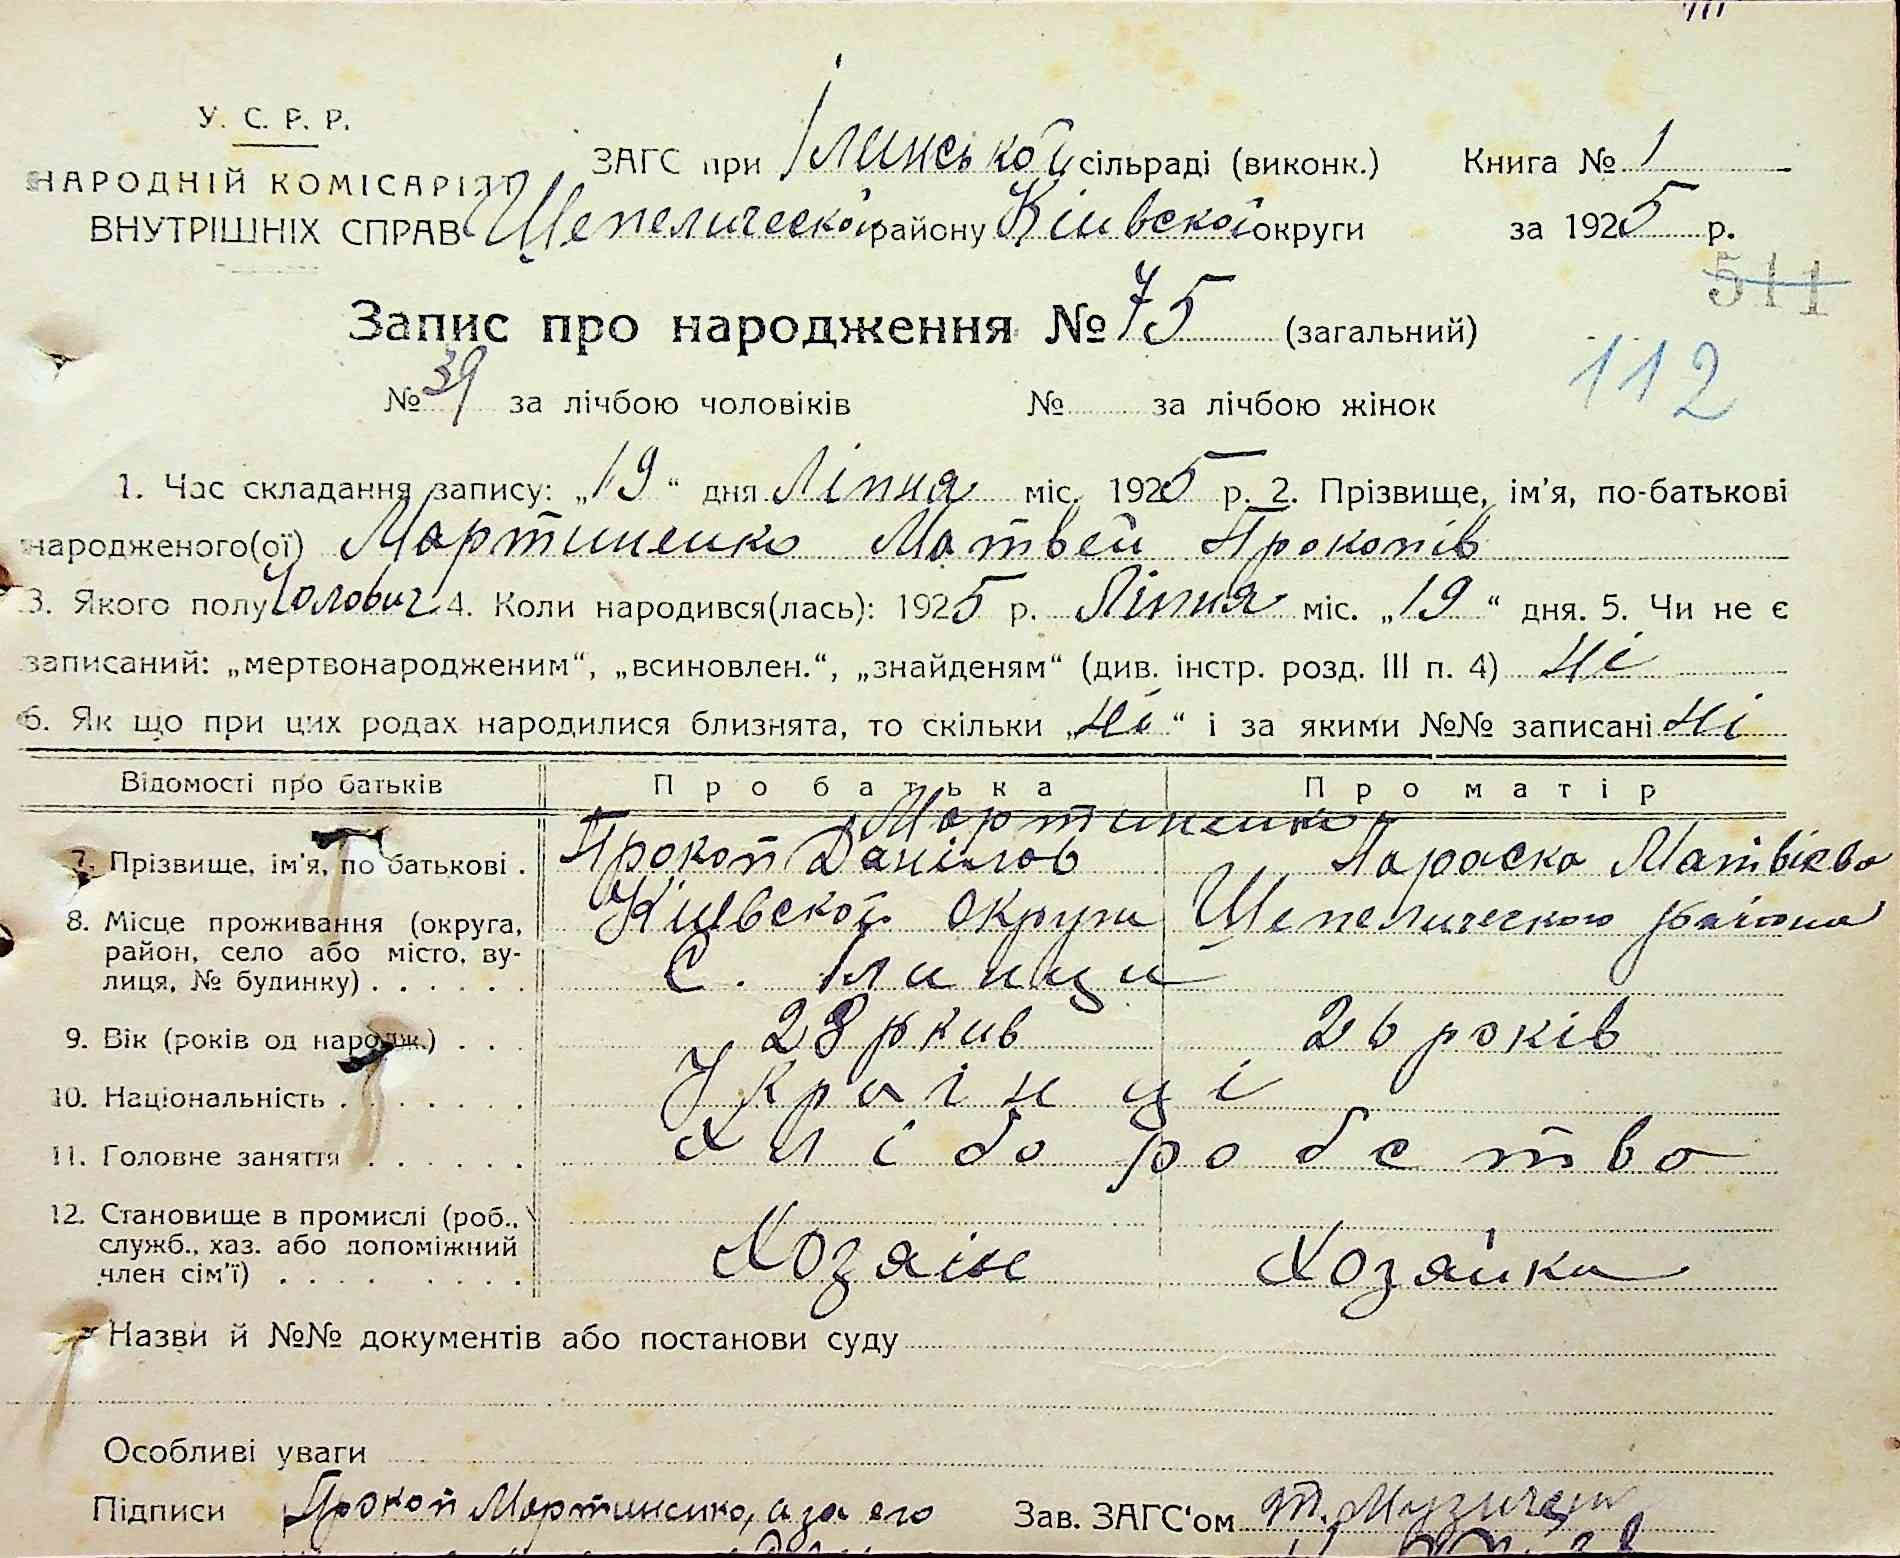 У. С. Р. Р.
НАРОДНІЙ КОМІСАРІЯТ
ВНУТРІШНІХ СПРАВ
ЗАГС при Ілинської сільраді (виконк.) Книга № 1
Шепелической району Кіивской округи за 1925 р.
511
Запис про народження № 75 (загальний)
112
№ 39 за лічбою чоловіків № за лічбою жінок
1. Час складання запису: „19“ дня Ліпня міс. 1925 р. 2. Прізвище, ім'я, по-батькові
народженого(ої) Мартиненко Матвей Прокопів
3. Якого полу Чоловіч 4. Коли народився(лась): 1925 р. Ліпня міс. „19“ дня. 5. Чи не є
записаний: „мертвонародженим“, „всиновлен.“, „знайденям“ (див. інстр. розд. III п. 4) Ні
6. Як що при цих родах народилися близнята, то скільки „Ні“ і за якими №№ записані Ні
Відомості про батьків Про батька Про матір
Мартиненко
7. Прізвище, ім'я, по батькові . Прокоп Данілов Параска Матвієва
8. Місце проживання (округа, Кіивской округи Шепелическою района
район, село або місто, ву-
лиця, № будинку) . . . . . . С. Ілинци
9. Вік (років од народж.) . . . 28 ркив 26 років
10. Національність . . . . . . . Українці
11. Головне заняття . . . . . . Хліборобство
12. Становище в промислі (роб.,
служб., хаз. або допоміжний Хозяін Хозяйка
член сім'ї) . . . . . . . . .
Назви й №№ документів або постанови суду
Особливі уваги
Підписи Прокоп Мартиненко, а за его Зав. ЗАГС'ом